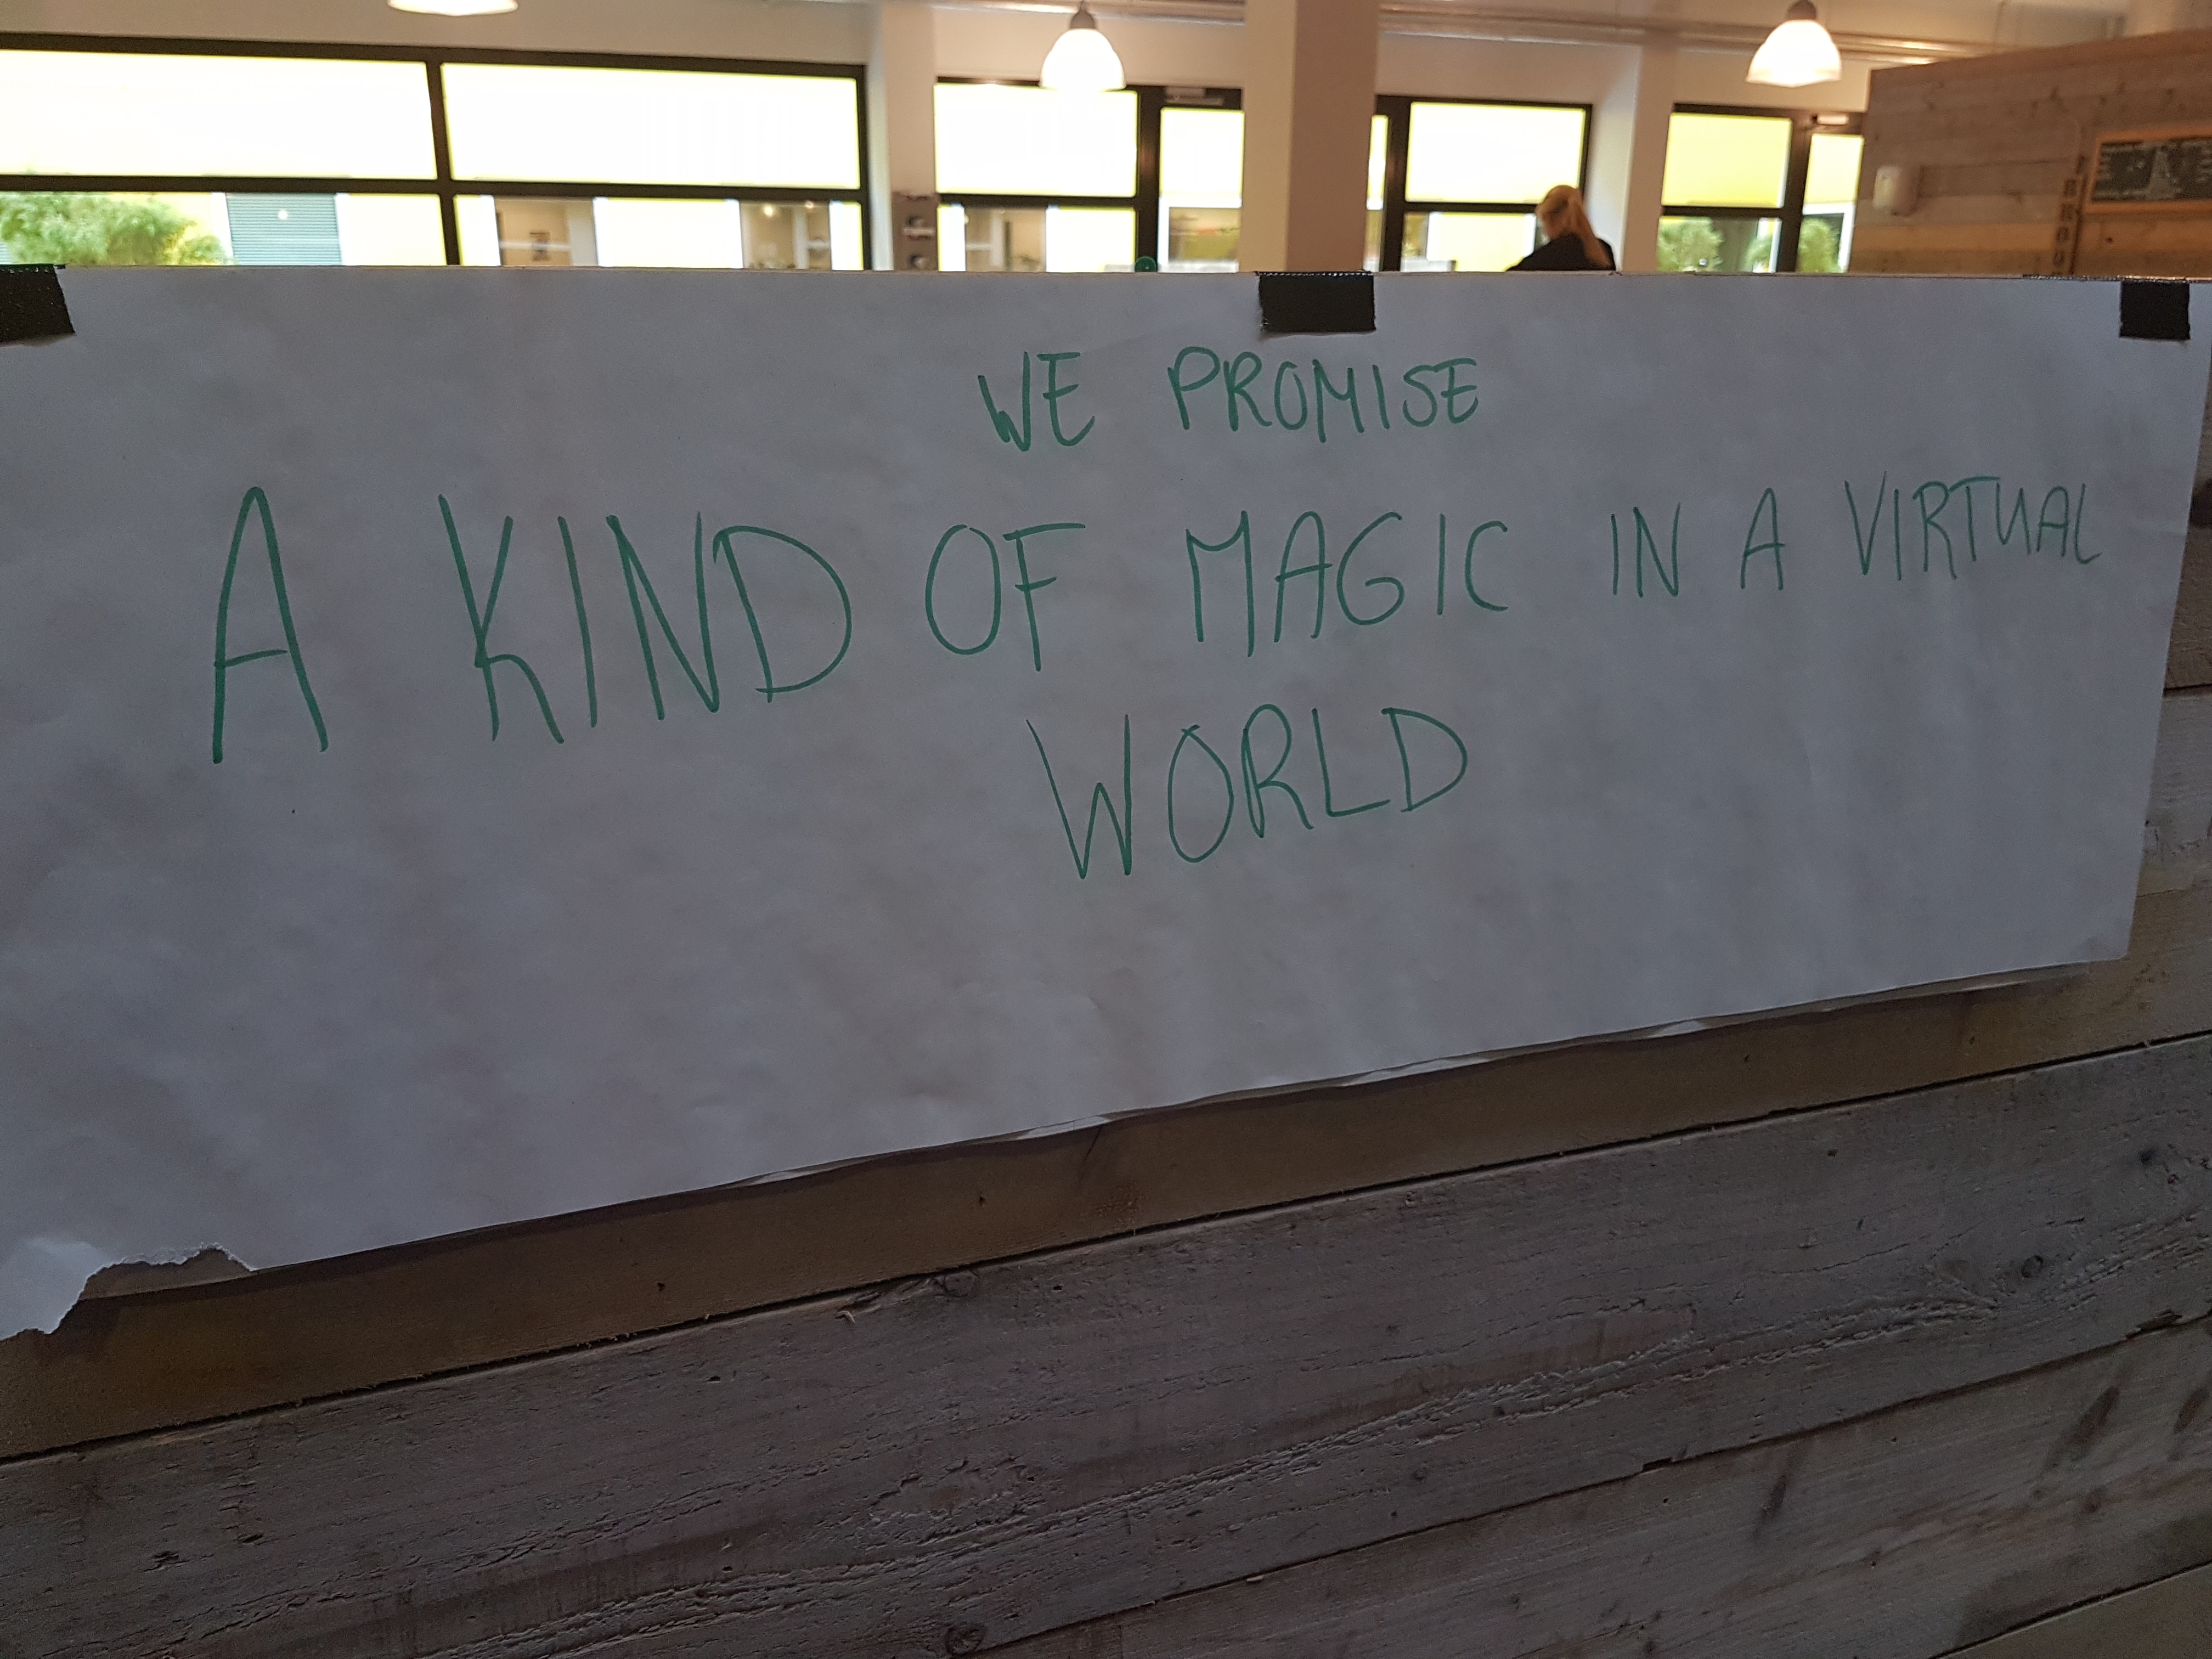 WE PROMISE
A KIND OF MAGIC IN A VIRTUAL
WORLD